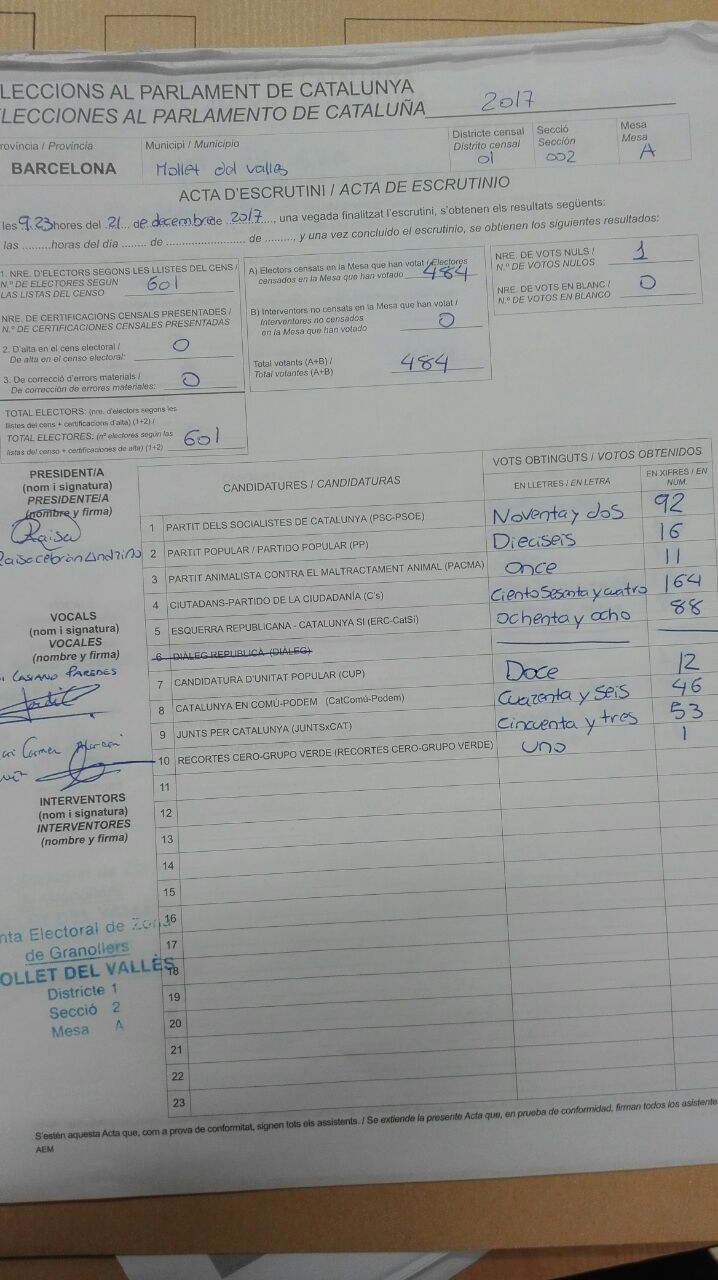 LECCIONS AL PARLAMENT DE CATALUNYA
LECCIONES AL PARLAMENTO DE CATALUÑA 2017
rovíncia / Provincia
BARCELONA
Municipi / Municipio
Mollet del valles
Districte censal
Distrito censal
01
Secció
Sección
002
Mesa
Mesa
A
ACTA D'ESCRUTINI / ACTA DE ESCRUTINIO
les 9.23 hores del 21 de decembre de 2017, una vegada finalitzat l'escrutini, s'obtenen els resultats següents:
las .........horas del día ....... de ........................ de ........, y una vez concluido el escrutinio, se obtienen los siguientes resultados:
1. NRE. D'ELECTORS SEGONS LES LLISTES DEL CENS /
N.º DE ELECTORES SEGÚN
LAS LISTAS DEL CENSO 601
NRE. DE CERTIFICACIONS CENSALS PRESENTADES /
N.º DE CERTIFICACIONES CENSALES PRESENTADAS
2. D'alta en el cens electoral /
De alta en el censo electoral: 0
3. De correcció d'errors materials /
De corrección de errores materiales: 0
TOTAL ELECTORS: (nre. d'electors segons les
llistes del cens + certificacions d'alta) (1+2) /
TOTAL ELECTORES: (nº electores según las
listas del censo + certificaciones de alta) (1+2) 601
A) Electors censats en la Mesa que han votat / Electores
censados en la Mesa que han votado 484
B) Interventors no censats en la Mesa que han votat /
Interventores no censados
en la Mesa que han votado 0
Total votants (A+B) /
Total votantes (A+B) 484
NRE. DE VOTS NULS /
N.º DE VOTOS NULOS 1
NRE. DE VOTS EN BLANC /
N.º DE VOTOS EN BLANCO 0
PRESIDENT/A
(nom i signatura)
PRESIDENTE/A
(nombre y firma)
Raisa
Raisa Cebrián Andrino
VOCALS
(nom i signatura)
VOCALES
(nombre y firma)
CASIANO PAREDES
Carmen
INTERVENTORS
(nom i signatura)
INTERVENTORES
(nombre y firma)
nta Electoral de Zona
de Granollers
OLLET DEL VALLÈS
Districte 1
Secció 2
Mesa A
CANDIDATURES / CANDIDATURAS
VOTS OBTINGUTS / VOTOS OBTENIDOS
EN LLETRES / EN LETRA
EN XIFRES / EN NÚM.
1 PARTIT DELS SOCIALISTES DE CATALUNYA (PSC-PSOE) Noventa y dos 92
2 PARTIT POPULAR / PARTIDO POPULAR (PP) Dieciseis 16
3 PARTIT ANIMALISTA CONTRA EL MALTRACTAMENT ANIMAL (PACMA) once 11
4 CIUTADANS-PARTIDO DE LA CIUDADANÍA (C's) Ciento Sesenta y cuatro 164
5 ESQUERRA REPUBLICANA - CATALUNYA SI (ERC-CatSí) ochenta y ocho 88
6 DIÀLEG REPUBLICÀ (DIÀLEG)
7 CANDIDATURA D'UNITAT POPULAR (CUP) Doce 12
8 CATALUNYA EN COMÚ-PODEM (CatComú-Podem) Cuarenta y seis 46
9 JUNTS PER CATALUNYA (JUNTSxCAT) Cincuenta y tres 53
10 RECORTES CERO-GRUPO VERDE (RECORTES CERO-GRUPO VERDE) uno 1
11
12
13
14
15
16
17
18
19
20
21
22
23
S'estén aquesta Acta que, com a prova de conformitat, signen tots els assistents. / Se extiende la presente Acta que, en prueba de conformidad, firman todos los asistente
AEM